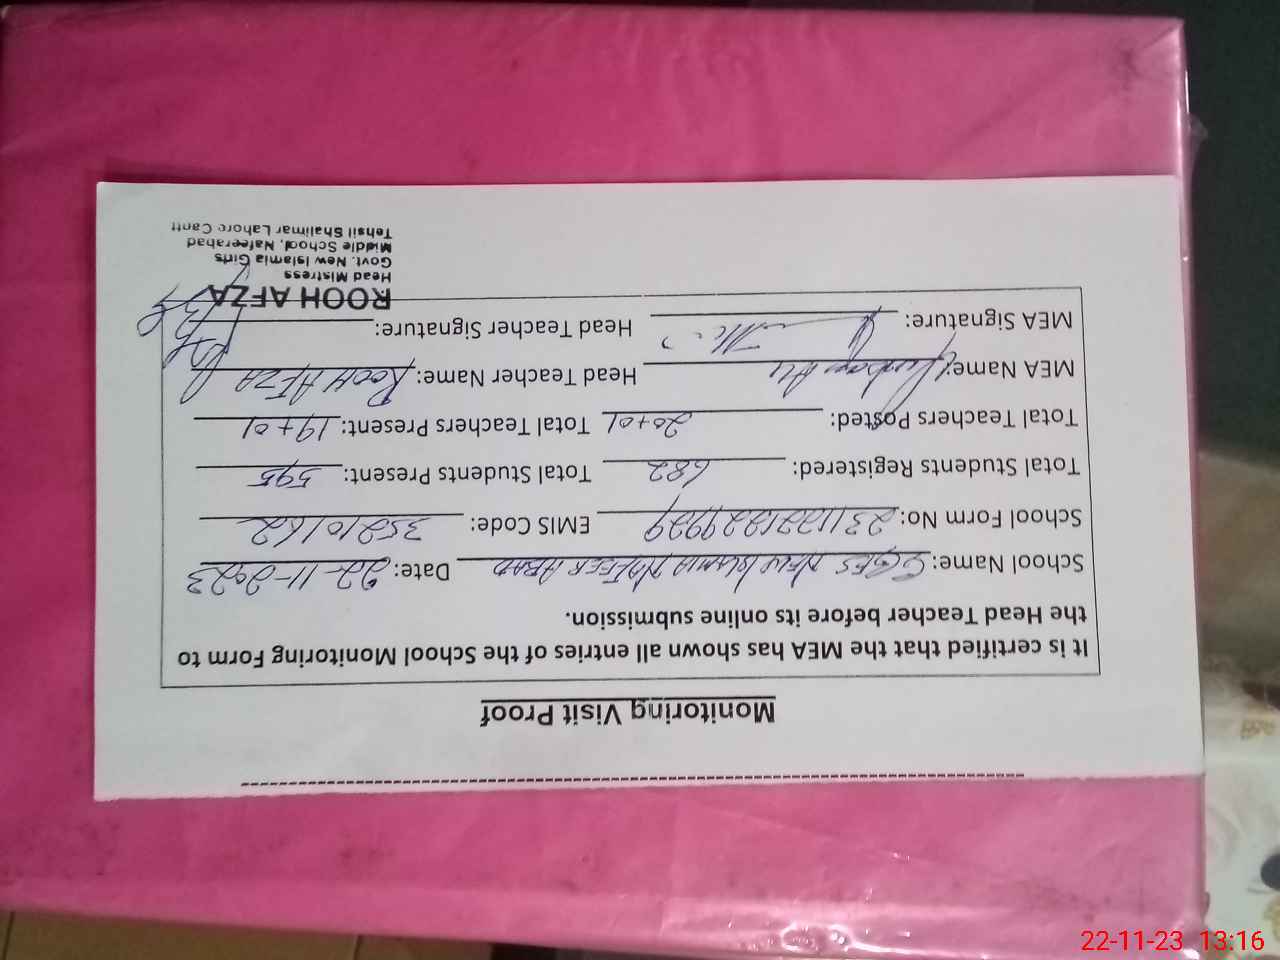 Monitoring Visit Proof
It is certified that the MEA has shown all entries of the School Monitoring Form to
the Head Teacher before its online submission.
School Name: GGES NEW ISLAMIA NAFEER ABAD Date: 22-11-2023
School Form No: EMIS Code: 35210162
Total Students Registered: 682 Total Students Present: 595
Total Teachers Posted: 20+01 Total Teachers Present: 19+01
MEA Name: Ali Head Teacher Name: ROOH AFZA
MEA Signature: Head Teacher Signature:
ROOH AFZA
Head Mistress
Govt. New Islamia Girls
Middle School, Nafeerabad
Tehsil Shalimar Lahore Cantt
22-11-23 13:16